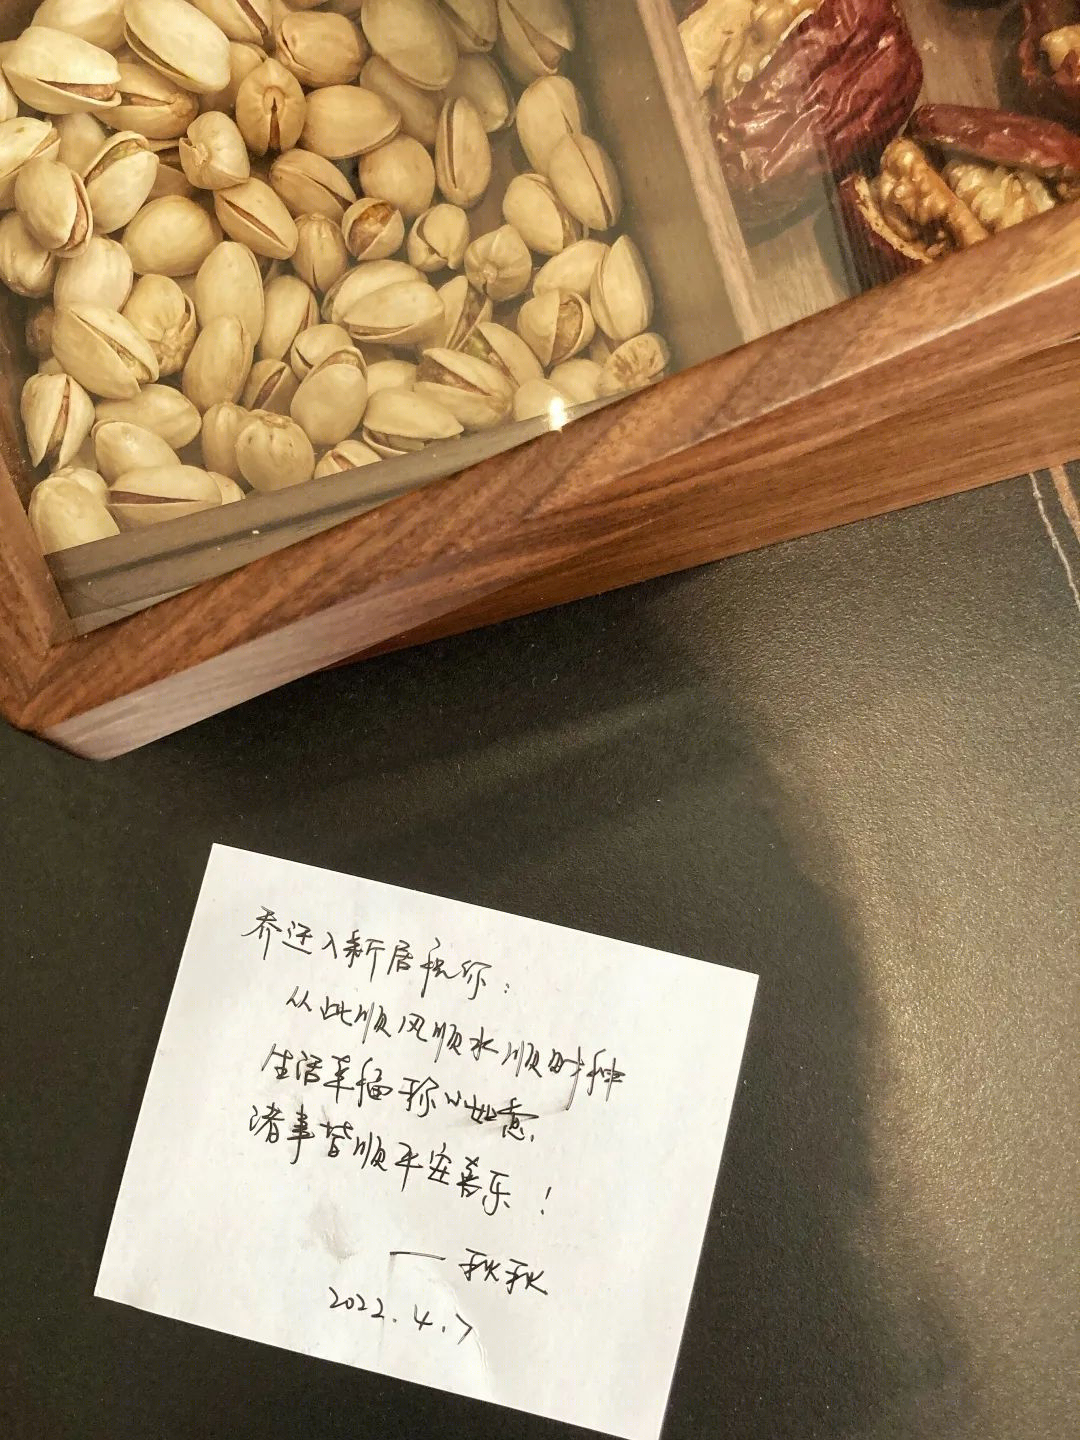 乔迁入新居祝你:
从此顺风顺水顺时神
生活幸福称心如意.
诸事皆顺平安喜乐!
——秋秋
2022.4.7